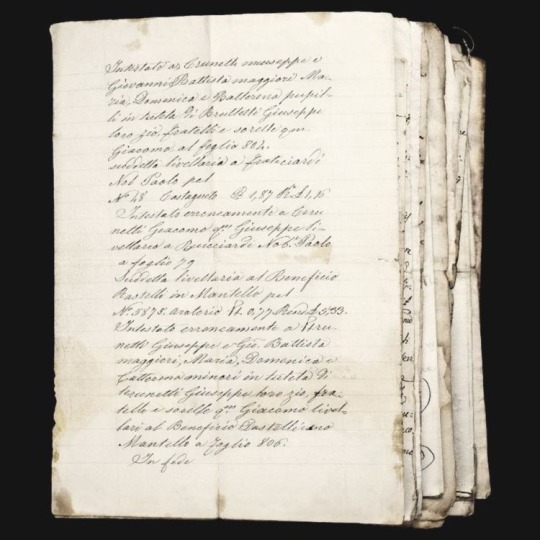 Intestato as Crunelli museppe e
Giovanni Battista maggiori Ma-
ria, Domenica e Catterena pupil-
li in tutela di Bruttetti Giuseppe
loro zio, fratelli e sorelle qm
Giacomo al foglio 804.
suddetta livellaria a
Nob Paolo pel
N° 48 Castagneto Pt 1,87 R. £ 1,15
Intestato erroneamente a Ceru
netti Giacomo qm Giuseppe li-
vellario a Quicciardi Nob. Paolo
a foglio 79
Suddetta livellaria al Beneficio
Rastelli in Mantello pel
N. 5878. aratorio Pt. 0,77 Rend £ 3,33.
Intestato erroneamente a
netti Giuseppe e Gio. Battista
maggiori, Maria, Domenica e
minori in tutela di
Giuseppe loro zio, fra-
telli e sorelle qm Giacomo livel-
lari al Beneficio
Mantello a foglio 806.
In fede